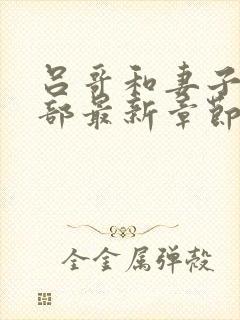 吕哥和妻子
部最新章节
全金属弹壳